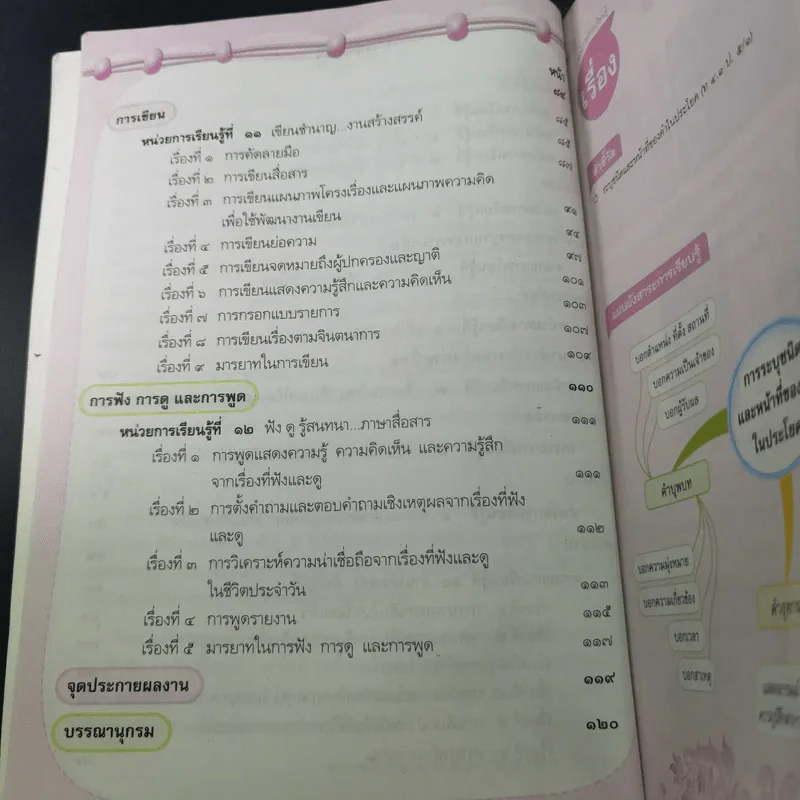 หน้า
การเขียน ๘๔
หน่วยการเรียนรู้ที่ ๑๑ เขียนชำนาญ...งานสร้างสรรค์ ๘๕
เรื่องที่ ๑ การคัดลายมือ ๘๕
เรื่องที่ ๒ การเขียนสื่อสาร ๘๗
เรื่องที่ ๓ การเขียนแผนภาพโครงเรื่องและแผนภาพความคิด
เพื่อใช้พัฒนางานเขียน ๙๑
เรื่องที่ ๔ การเขียนย่อความ ๙๔
เรื่องที่ ๕ การเขียนจดหมายถึงผู้ปกครองและญาติ ๙๗
เรื่องที่ ๖ การเขียนแสดงความรู้สึกและความคิดเห็น ๑๐๑
เรื่องที่ ๗ การกรอกแบบรายการ ๑๐๓
เรื่องที่ ๘ การเขียนเรื่องตามจินตนาการ ๑๐๗
เรื่องที่ ๙ มารยาทในการเขียน ๑๐๙
การฟัง การดู และการพูด ๑๑๐
หน่วยการเรียนรู้ที่ ๑๒ ฟัง ดู รู้สนทนา...ภาษาสื่อสาร ๑๑๑
เรื่องที่ ๑ การพูดแสดงความรู้ ความคิดเห็น และความรู้สึก
จากเรื่องที่ฟังและดู ๑๑๑
เรื่องที่ ๒ การตั้งคำถามและตอบคำถามเชิงเหตุผลจากเรื่องที่ฟัง
และดู ๑๑๒
เรื่องที่ ๓ การวิเคราะห์ความน่าเชื่อถือจากเรื่องที่ฟังและดู
ในชีวิตประจำวัน ๑๑๓
เรื่องที่ ๔ การพูดรายงาน ๑๑๕
เรื่องที่ ๕ มารยาทในการฟัง การดู และการพูด ๑๑๗
จุดประกายผลงาน ๑๑๙
บรรณานุกรม ๑๒๐
เรื่อง
ตัวชี้วัด
ระบุชนิดและหน้าที่ของคำในประโยค (ท ๔.๑ ป. ๕/๑)
แผนผังสาระการเรียนรู้
บอกตำแหน่ง ที่ตั้ง สถานที่
บอกความเป็นเจ้าของ
บอกผู้รับผล
คำบุพบท
บอกความมุ่งหมาย
บอกความเกี่ยวข้อง
บอกเวลา
บอกสาเหตุ
การระบุชนิด
และหน้าที่ของ
ในประโยค